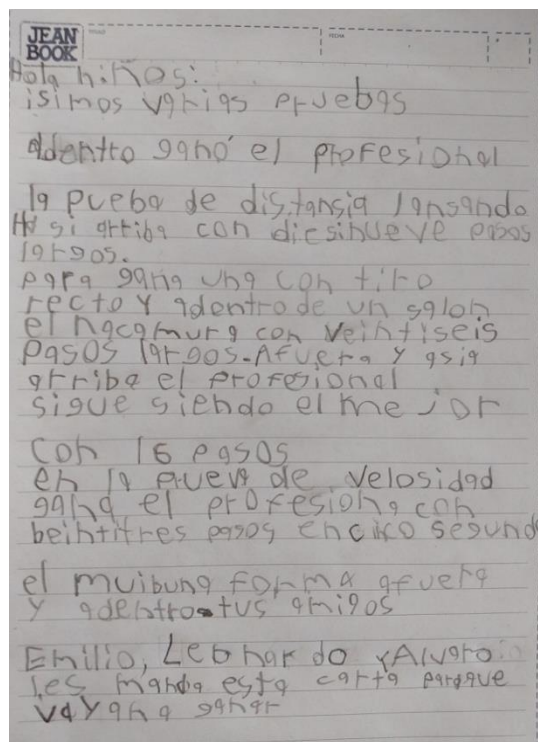 JEAN
BOOK
Hola niños:
isimos varias pruebas
adentro ganó el profesional
la pueba de distansia lansando
Hasi arriba con diesinueve pasos
largos.
para gana una con tiro
recto y adentro de un salon
el nacamura con veintiseis
pasos largos. Afuera y asia
arriba el profesional
sigue siendo el mejor
con 16 pasos
en la pueva de velosidad
gana el profesiona con
beintitres pasos en cinco segund
el muibuna forma afuera
y adentro tus amigos
Emilio, Leonardo y Alvaro
les manda esta carta paraque
vayan a ganar